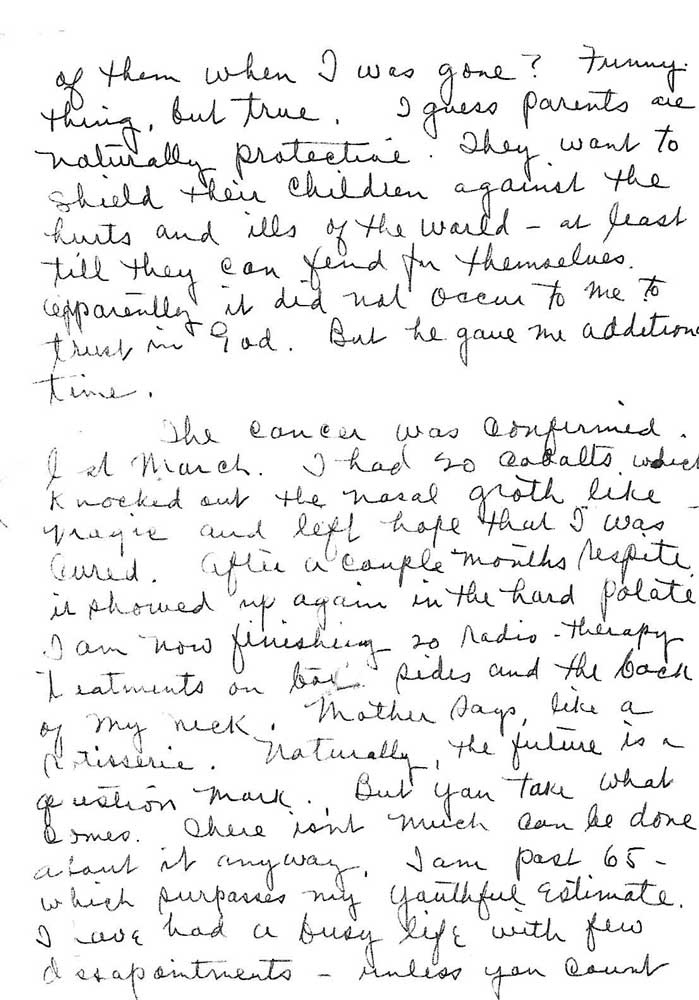 of them when I was gone? Funny
thing, but true. I guess parents are
naturally protective. They want to
shield their children against the
hurts and ills of the world - at least
till they can fend for themselves.
Apparently it did not occur to me to
trust in God. But he gave me addition
time.
The cancer was confirmed
last March. I had 20 cobalts which
knocked out the nasal groth like
magic and left hope that I was
cured. After a couple months respite
it showed up again in the hard polate
I am now finishing 20 radio-therapy
treatments on both sides and the back
of my neck. Mother says, like a
rotisserie. Naturally, the future is a
question mark. But you take what
comes. There isn't much can be done
about it anyway. I am past 65 -
which surpasses my youthful estimate.
I have had a busy life with few
dissapointments - unless you count